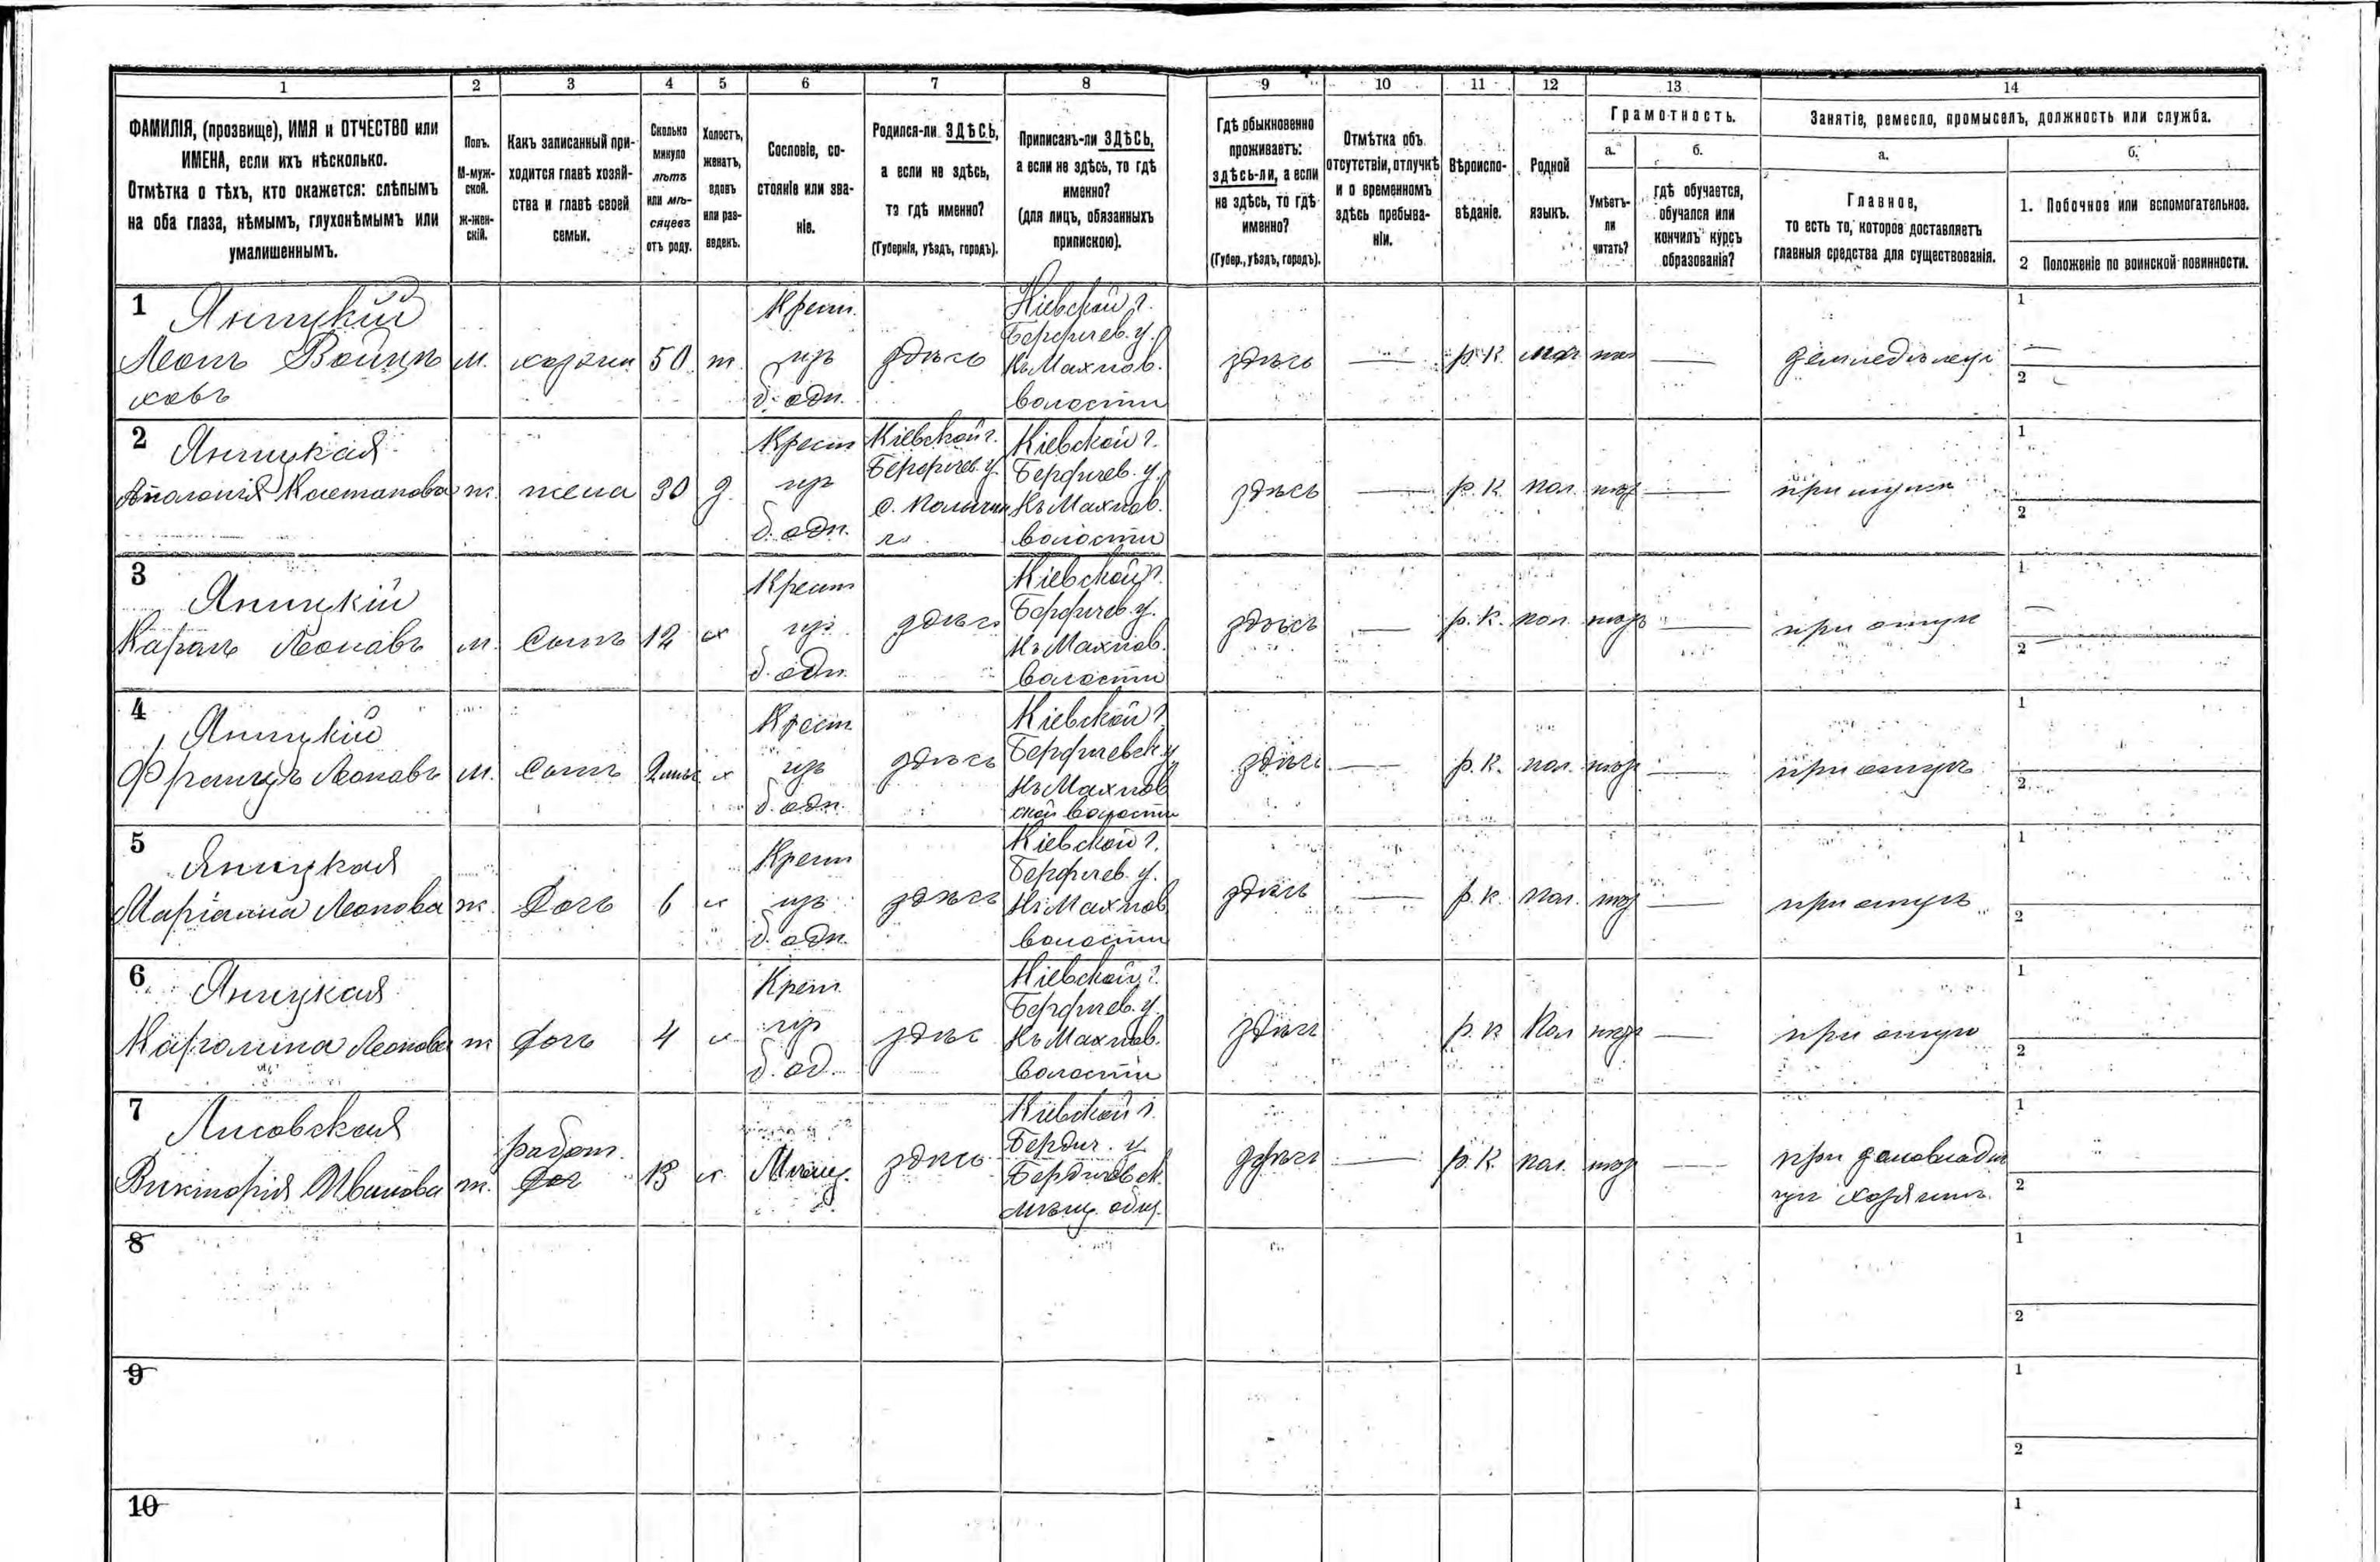 1 2 3 4 5 6 7 8 9 10 11 12 13 14
ФАМИЛІЯ, (прозвище), ИМЯ и ОТЧЕСТВО или
ИМЕНА, если ихъ нѣсколько.
Отмѣтка о тѣхъ, кто окажется: слѣпымъ
на оба глаза, нѣмымъ, глухонѣмымъ или
умалишеннымъ.
Полъ.
М-муж-
ской.
Ж-жен-
скій.
Какъ записанный при-
ходится главѣ хозяй-
ства и главѣ своей
семьи.
Сколько
минуло
лѣтъ
или мѣ-
сяцевъ
отъ роду.
Холостъ,
женатъ,
вдовъ
или раз-
веденъ.
Сословіе, со-
стояніе или зва-
ніе.
Родился-ли ЗДѢСЬ,
а если не здѣсь,
то гдѣ именно?
(Губернія, уѣздъ, городъ).
Приписанъ-ли ЗДѢСЬ,
а если не здѣсь, то гдѣ
именно?
(для лицъ, обязанныхъ
припискою).
Гдѣ обыкновенно
проживаетъ:
здѣсь-ли, а если
не здѣсь, то гдѣ
именно?
(Губер., уѣздъ, городъ).
Отмѣтка объ
отсутствіи, отлучкѣ
и о временномъ
здѣсь пребыва-
ніи.
Вѣроиспо-
вѣданіе.
Родной
языкъ.
Грамотность.
а.
Умѣетъ-
ли
читать?
б.
гдѣ обучается,
обучался или
кончилъ курсъ
образованія?
Занятіе, ремесло, промыселъ, должность или служба.
а.
Главное,
то есть то, которое доставляетъ
главныя средства для существованія.
б.
1. Побочное или вспомогательное.
2 Положеніе по воинской повинности.
1
Яницкій
Леонъ Войцѣ
ховъ
м. хозяин 50 ж.
Крест.
изъ
б. одн.
здѣсь
Кіевской г.
Бердичев. у.
Къ Махнов.
волости
здѣсь — р. К. —
1
2
2
Яницкая
Аполонія
ж. жена 30 з.
Крест
изъ
б. одн.
Кіевской г.
Бердичев. у.
Кіевской г.
Бердичев. у.
Къ Махнов.
волости
здѣсь — р. К. пол. —
1
2
3
Яницкій
Кароль Леоновъ
м. Сынъ 12 х
Крест
изъ
б. одн.
здѣсь
Кіевской г.
Бердичев. у.
Къ Махнов.
волости
здѣсь — р. К. пол. —
при отцѣ
1
2
4
Яницкій
Францъ Леоновъ
м. Сынъ х
Крест
изъ
б. одн.
здѣсь
Кіевской г.
Бердичевск. у.
Къ Махнов
ской волости
здѣсь — р. К. пол. —
при отцѣ
1
2
5
Яницкая
Маріанна Леонова
ж. Дочь 6 х
Крест
изъ
б. одн.
здѣсь
Кіевской г.
Бердичев. у.
Къ Махнов
волости
здѣсь — р. К. пол. —
при отцѣ
1
2
6
Яницкая
Каролина Леонова
ж дочь 4 х
Крест
изъ
б. од.
здѣс
Кіевской г.
Бердичев. у.
Къ Махнов.
волости
здѣсь р. К Пол —
при отцѣ
1
2
7
Лисовская
Викторія Иванова
ж. работ. 13 х
Мѣщ.
здѣсь
Кіевской г.
Бердич. у
Бердичевск.
мѣщ. общ.
здѣсь — р. К. пол. —
1
2
8
1
2
9
1
2
10
1